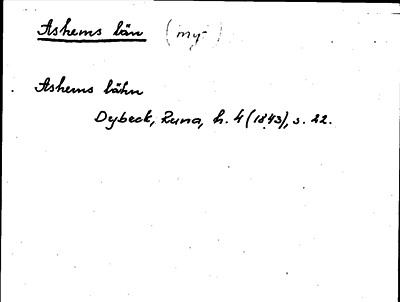 Askems län (my-)
Askems lähn
Dybeck, Runa, h. 4 (1843), s. 22.